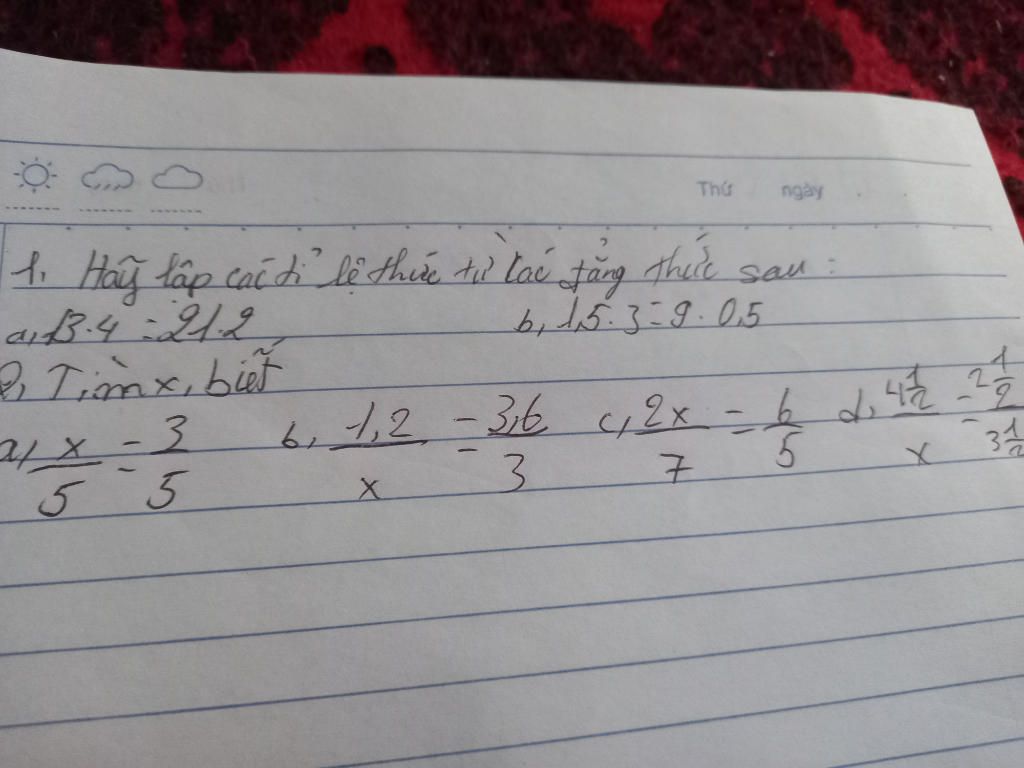 Thứ ngày
1. Hãy lập các tỉ lệ thức từ các đẳng thức sau :
a, 13.4 = 21.2 b, 1,5.3 = 9.0,5
2, Tìm x, biết
a, x/5 = 3/5 b, -1,2/x = 3,6/3 c, 2x/7 = 6/5 d, 4 1/2/x = 2 1/2/3 1/2